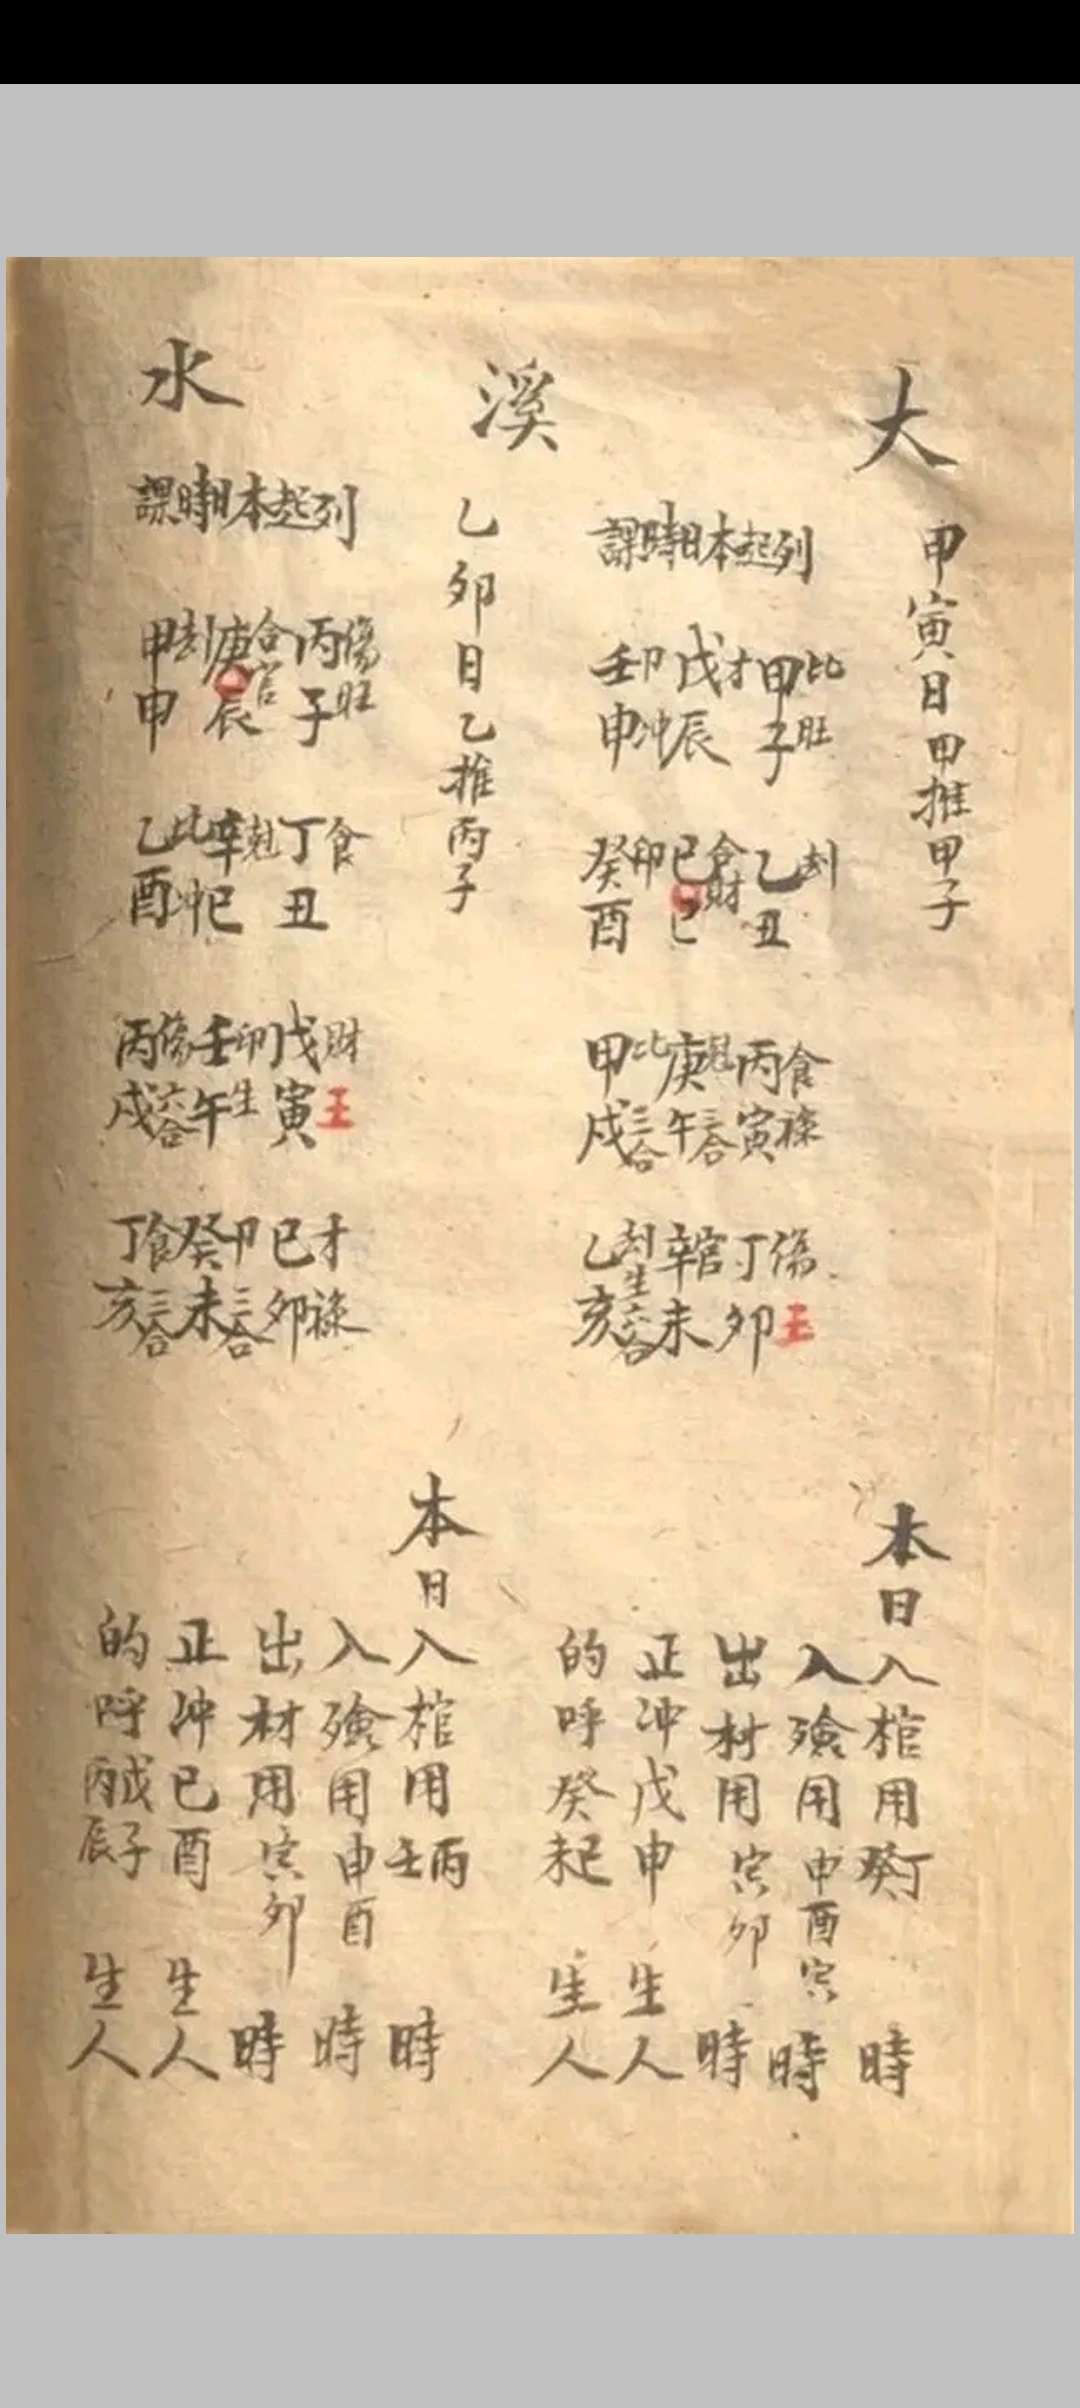 大溪水
甲寅日甲推甲子
列起本日時課
甲比子旺
戊才辰
壬卩申冲
乙刦丑
己合財巳
癸卩酉
丙食寅祿
庚尅午三合
甲比戌三合
丁傷卯王
辛官未
乙刦亥生六合
本日入棺用丁癸時
入殮用申酉寅時
出材用寅卯時
正冲戊申生人
的呼癸未
生人
乙卯日乙推丙子
列起本日時課
丙傷子旺
庚合官辰
甲刦申
丁食丑
辛尅巳
乙比酉冲
戊財寅王
壬印午生
丙傷戌六合
己才卯祿
癸卩未三合
丁食亥三合
本日入棺用丙壬時
入殮用申酉時
出材用寅卯時
正冲己酉生人
的呼戊子丙辰生人